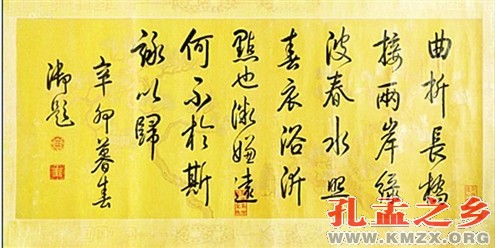 曲折長橋
接兩岸綠
波春水照
春衣浴沂
點也微嫌遠
何不於斯
詠以歸
辛卯暮春
御題
孔孟之乡
WWW.KMZX.ORG